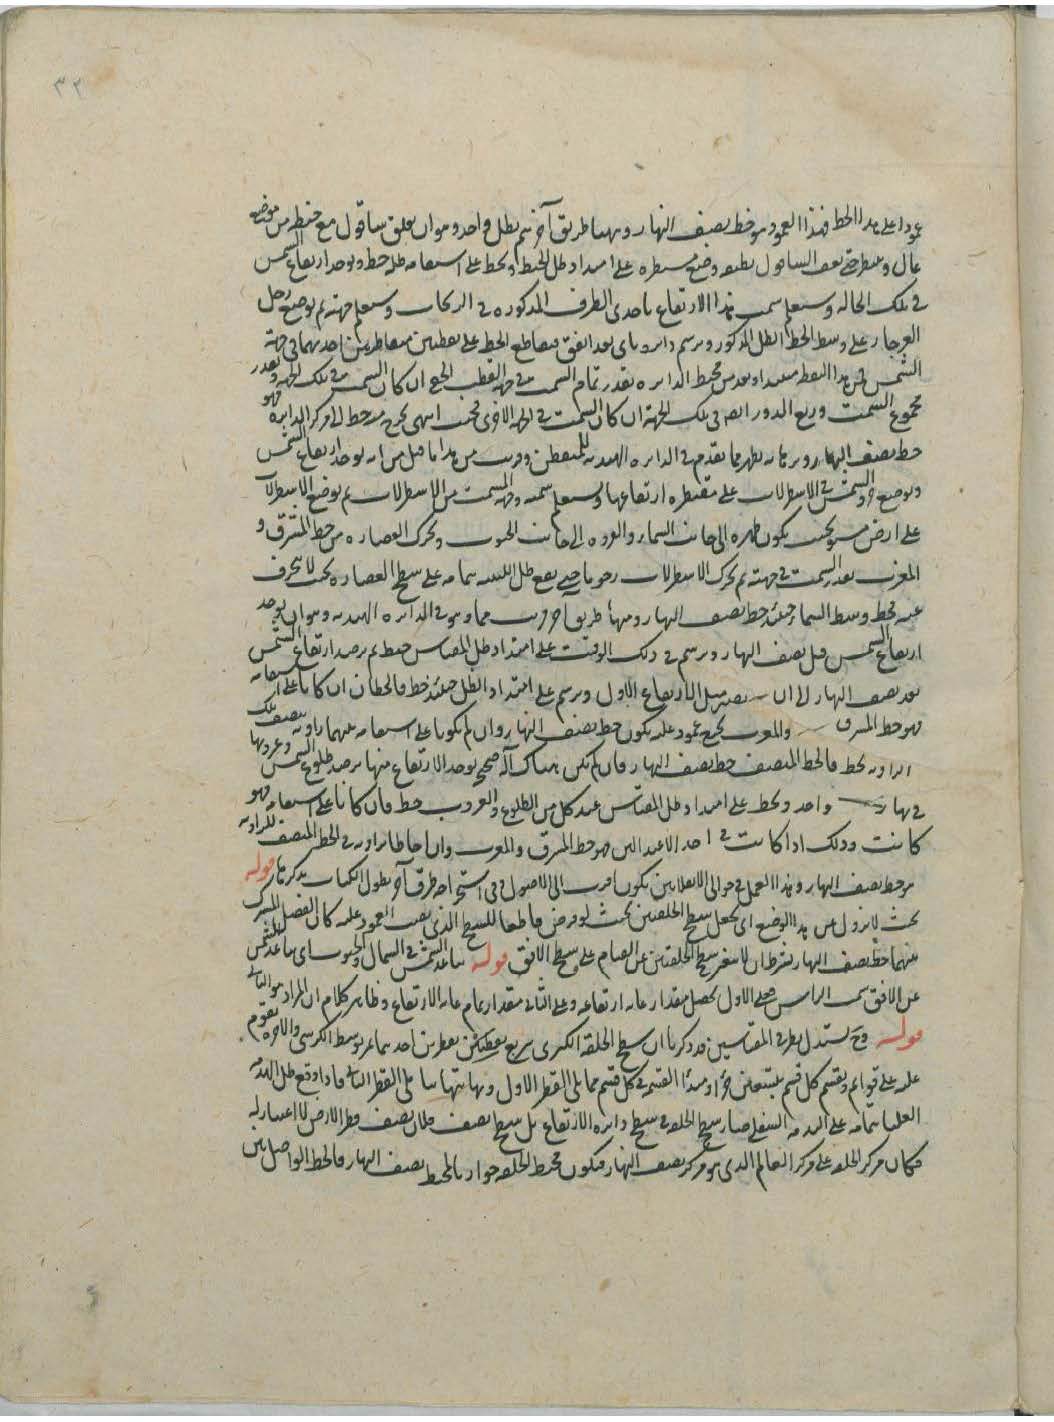 ٣٢
عمودا على هذا الخط فهذا العمود هو خط نصف النهار وههنا طريق آخر يتم بظل واحد وهو ان يعلق شاقول مع خيطه من موضع
عال وينتظر حتى يقف الشاقول بطبعه وضع مسطره على امتداد ظل الخيط ويخط على استقامه ظله خط ويوخذ ارتفاع الشمس
فى تلك الحاله ويستعلم سمت هذا الارتفاع باحدى الطرق المذكوره فى الزيجات ويستعلم جهته ثم يوضع رجل
الفرجار على وسط الخط الظل المذكور ويرسم دايره باى بعد اتفق فيقاطع الخط على نقطتين متقاطرتين احديهما فى جهة
الشمس هذا النقط مبتدا ويعد من محيط الدايره بقدر تمام السمت فى جهه القطب الخفى ان كان السمت فى تلك الجهه وبقدر
مجموع السمت وربع الدور ايضا فى تلك الجهة ان كان السمت فى الجهه الاخرى فحيث انتهى يخرج منه خط الى مركز الدايره فهو
خط نصف النهار وبرهانه يظهر مما تقدم فى الدايره الهنديه للمتفطن وقريب من هذا ما قيل من انه يوخذ ارتفاع الشمس
ويوضع جزو الشمس فى الاسطرلاب على مقنطره ارتفاعها ويستعلم سمته وجهه السمت من الاسطرلاب ثم يوضع الاسطرلاب
على ارض مستو بحيث يكون ظهره الى جانب السماء والعروه الى جانب الجنوب ويحرك العضاده من خط المشرق و
المغرب بعد السمت فى جهته ثم يحرك الاسطرلاب رحويا حتى يقع ظل اللبنه بتمامه على سطح العضاده بحيث لا ينحرف
عنه فخط وسط السماء حينئذ خط نصف النهار وههنا طريق آخر قريب مما هو فى الدايره الهنديه وهو ان يوخذ
ارتفاع الشمس قبل نصف النهار ويرسم فى ذلك الوقت على امتداد ظل المقياس خيط ثم يرصد ارتفاع الشمس
بعد نصف النهار الى ان يصير مثل الارتفاع الاول ويرسم على امتداد الظل حينئذ خط فالخطان ان كانا على استقامه
فهو خط المشرق والمغرب يخرج عمود عليه يكون خط نصف النهار وان لم يكونا على استقامه فبينهما زاويه ينصف تلك
الزاويه بخط فالخط المنصف خط نصف النهار فان لم تكن هناك آلة صحيح يوخذ الارتفاع منها يرصد طلوع الشمس وغروبها
فى نهار واحد ويخط على امتداد ظل المقياس عند كل من الطلوع والغروب خط فان كانا على استقامه فهو
كانت وذلك اذا كانت فى احد الاعتدالين فهو خط المشرق والمغرب وان احاطا بزاويه فالخط المنصف للزاويه
هو خط نصف النهار وهذا العمل فى حوالى الانقلابين يكون اقرب الى الاصول وفى استخراجه طرق آخر يطول الكتاب بذكرها قوله
بحيث لا يزول عن هذا الوضع اى يجعل سطح الحلقتين بحيث لو فرض قاطعا للسطح الذى نصب العمود عليه كان الفصل المشترك
بينهما خط نصف النهار بشرط ان لا يتغير سطح الحلقتين عن القيام على سطح الافق قوله تباعد الشمس فى الشمال والجنوب اى تباعد الشمس
عن الافق سمت الراس فعلى الاول يحصل مقدار غايه ارتفاعه وعلى الثانى مقدار تمام غايه الارتفاع وظاهر كلام ان المراد هو الثانى
قوله وح يستدل بطرف المقياسين قد ذكرنا ان سطح الحلقه الكبرى يربع بقطرين احدهما يمر بوسط الكرسى والاخر يقوم
عليه على قوائم ويقسم كل قسم بتسعين جزءا ومبدأ القسمه فى كل قسم مما يلى القطر الاول ونهايتها مما يلى القطر الثانى فاذا وقع ظل اللبنه
العليا بتمامه على اللبنه السفلى صار سطح الحلقه فى سطح دايره الارتفاع بل سطح نصف فلان نصف قطر الارض لا اعتبار له
فكان مركز الحلقه على مركز العالم الذى هو مركز نصف النهار فيكون محيط الحلقه موازيا لمحيط نصف النهار فالخط الواصل بين